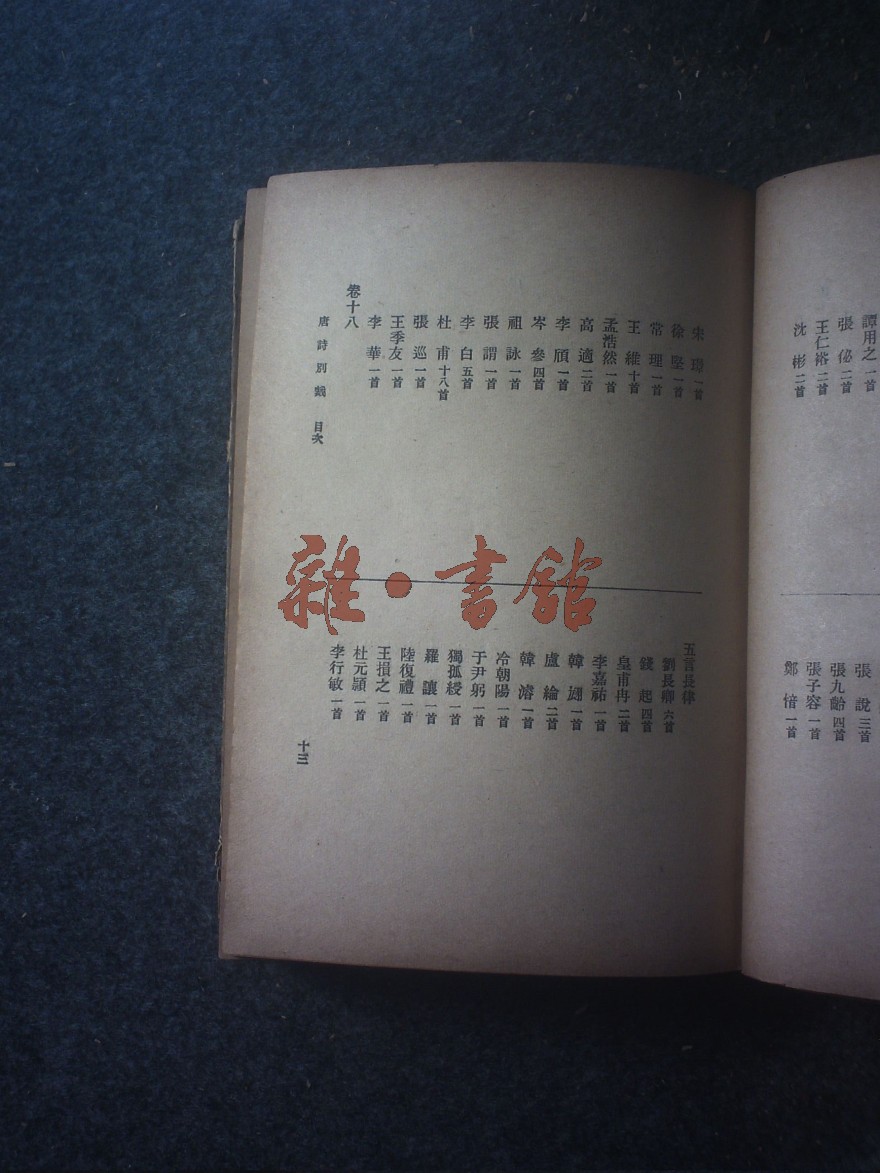 譚用之 一首
張佖 二首
王仁裕 二首
沈彬 二首
張說 三首
張九齡 四首
張子容 一首
鄭愔 一首
宋璟 一首
徐堅 一首
常理 一首
王維 十首
孟浩然 一首
高適 二首
李頎 一首
岑參 四首
祖詠 一首
張謂 一首
李白 五首
杜甫 十八首
張巡 一首
王季友 一首
李華 一首
卷十八
五言長律
劉長卿 六首
錢起 四首
皇甫冉 二首
李嘉祐 一首
韓翃 一首
盧綸 二首
韓濬 一首
冷朝陽 一首
于尹躬 一首
獨孤綬 一首
羅讓 一首
陸復禮 一首
王損之 一首
杜元頴 一首
李行敏 一首
唐詩別裁 目次
十三
雜·書館